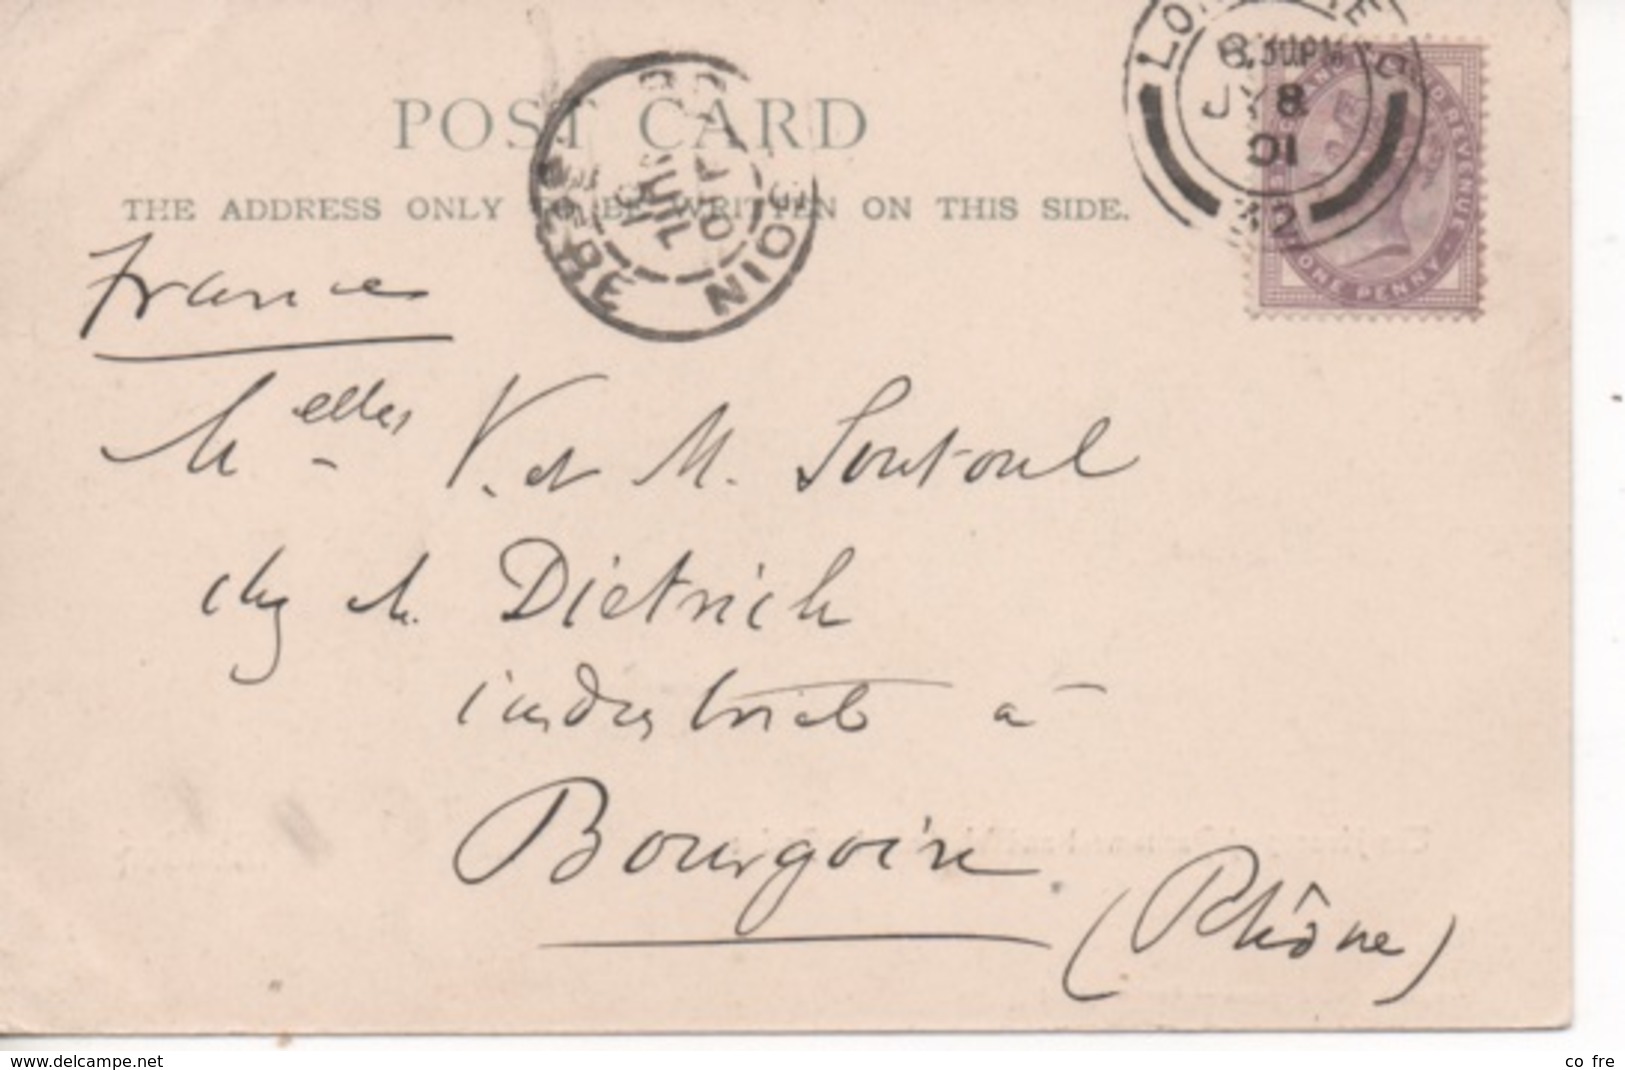 POST CARD
THE ADDRESS ONLY TO BE WRITTEN ON THIS SIDE.
8.30PM
JY 8
01
32
POSTAGE AND INLAND REVENUE
ONE PENNY
BOURGOIN
ISERE
France
Melles V. et M. Soutoul
chez M. Dietrich
industriel à
Bourgoin.
(Rhône)
www.delcampe.net
co fre